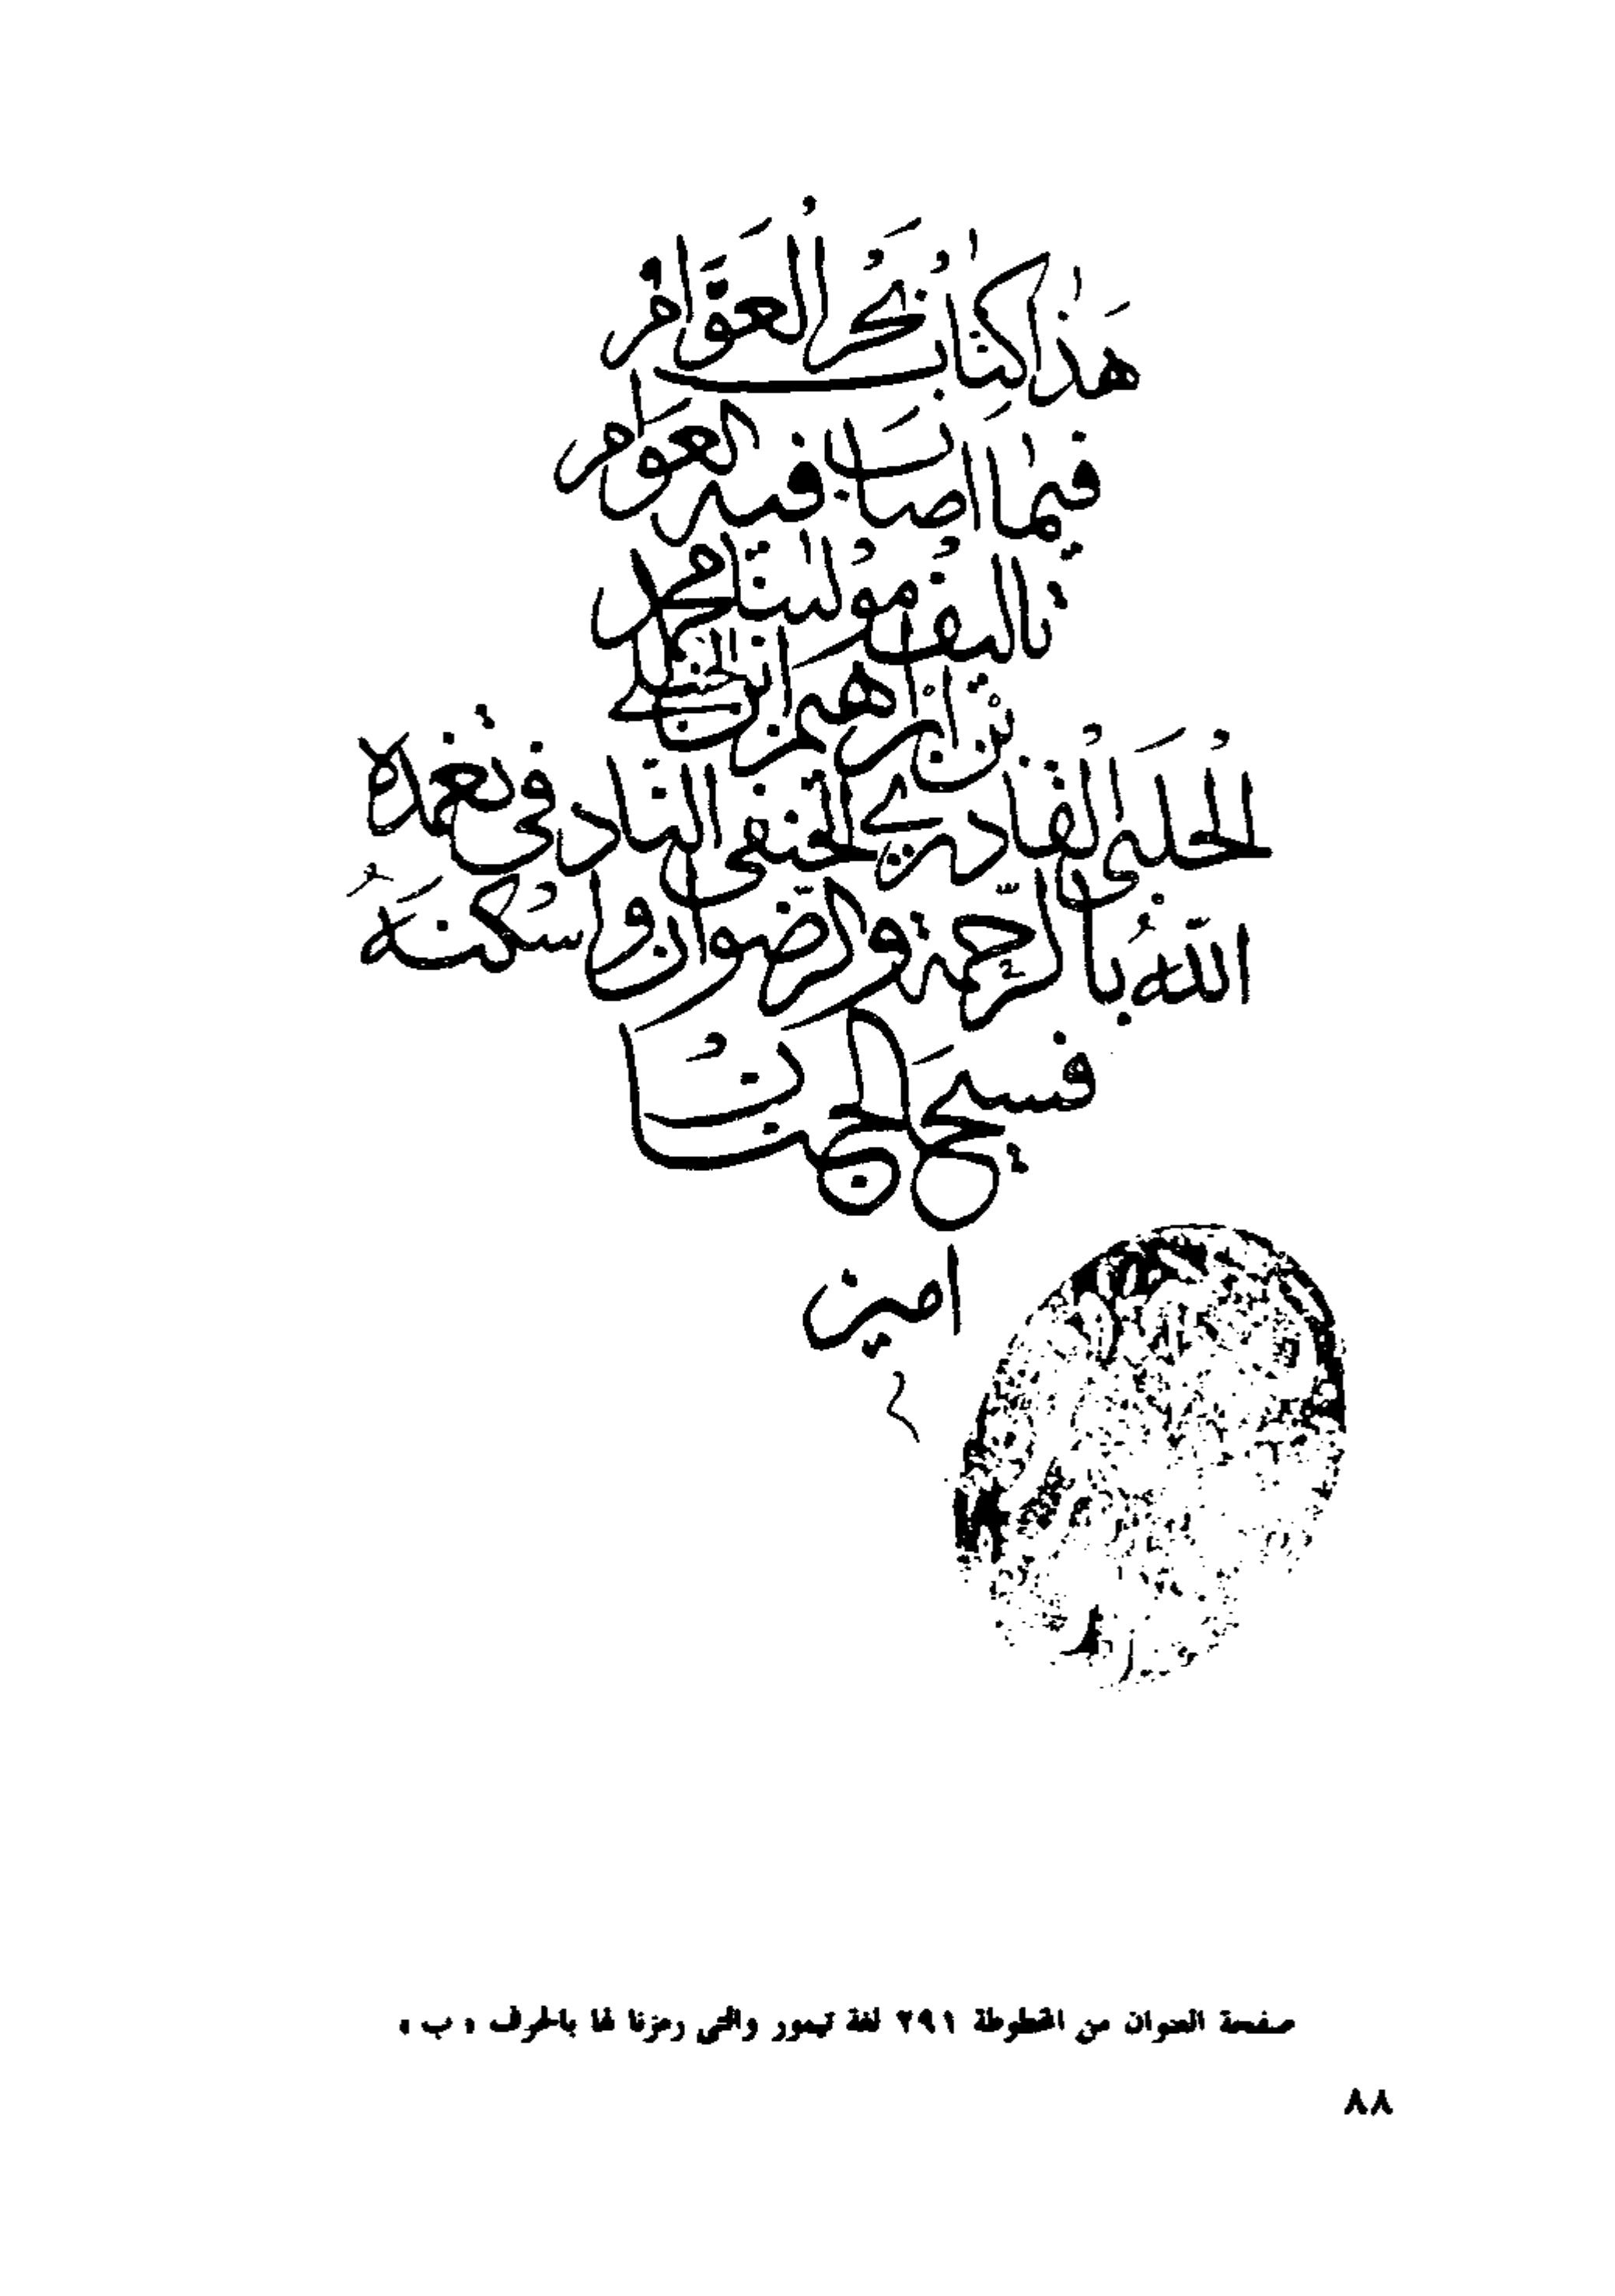 هَذَا كِتَابُ بَحْرُ العَوَّام
فِيمَا اصَابَ فيه العَوَام
تاليف مولٰينَا محمد
بْن ابْرٰهيم ابن الحنبلي
الحَلَبي القادري الحنفي التادفي تغمده
الله بالرّحمة والرّضوان واسكنَهُ
فسيحَ الجنت
امين
صفحة العنوان من المخطوطة ٢٩١ لغة تيمور والتي رمزنا لها بالحرف « ب »
٨٨